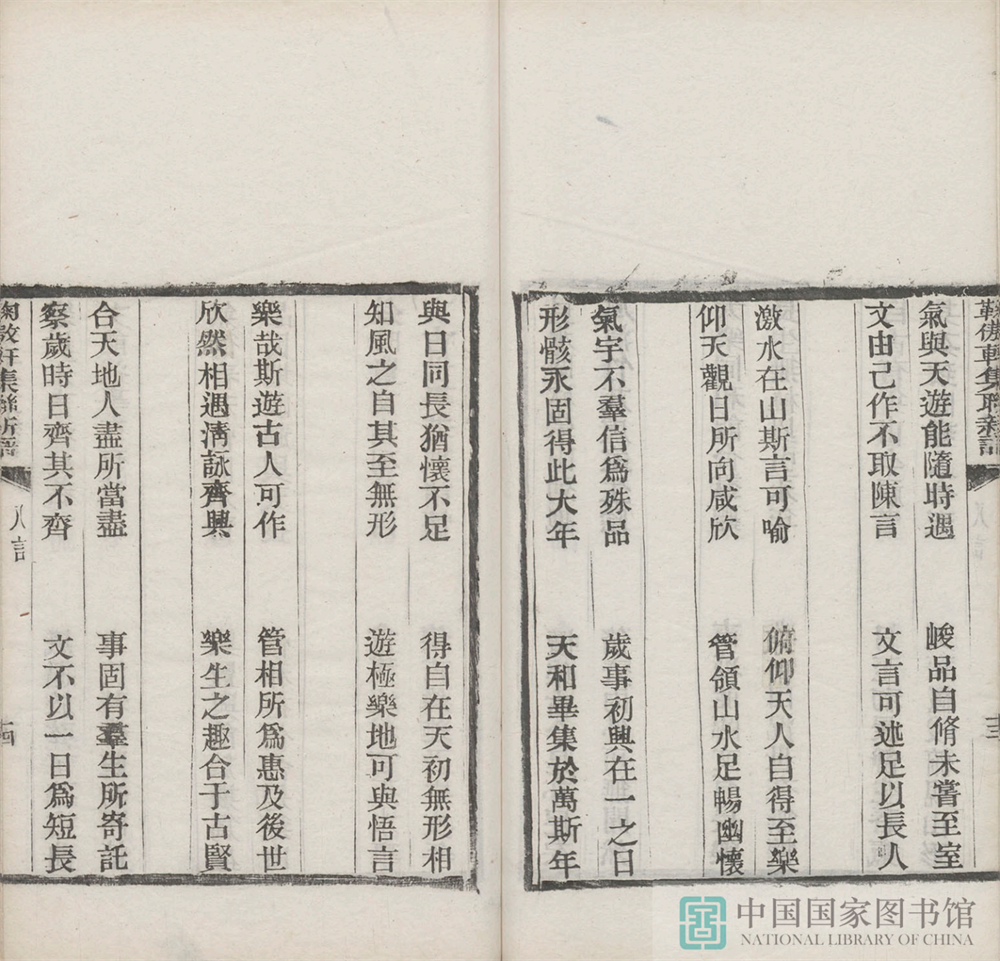 集聯
氣與天遊能隨時遇 峻品自脩未嘗至室
文由己作不取陳言 文言可述足以長人
激水在山斯言可喻 俯仰天人自得至樂
仰天觀日所向咸欣 管領山水足暢幽懷
氣宇不羣信為殊品 歲事初興在一之日
形骸永固得此大年 天和畢集於萬斯年
與日同長猶懷不足 得自在天初無形相
知風之自其至無形 遊極樂地可與悟言
樂哉斯遊古人可作 管相所為惠及後世
欣然相遇清詠齊興 樂生之趣合于古賢
合天地人盡所當盡 事固有羣生所寄託
察歲時日齊其不齊 文不以一日為短長
集 八言
中国国家图书馆
NATIONAL LIBRARY OF CHINA